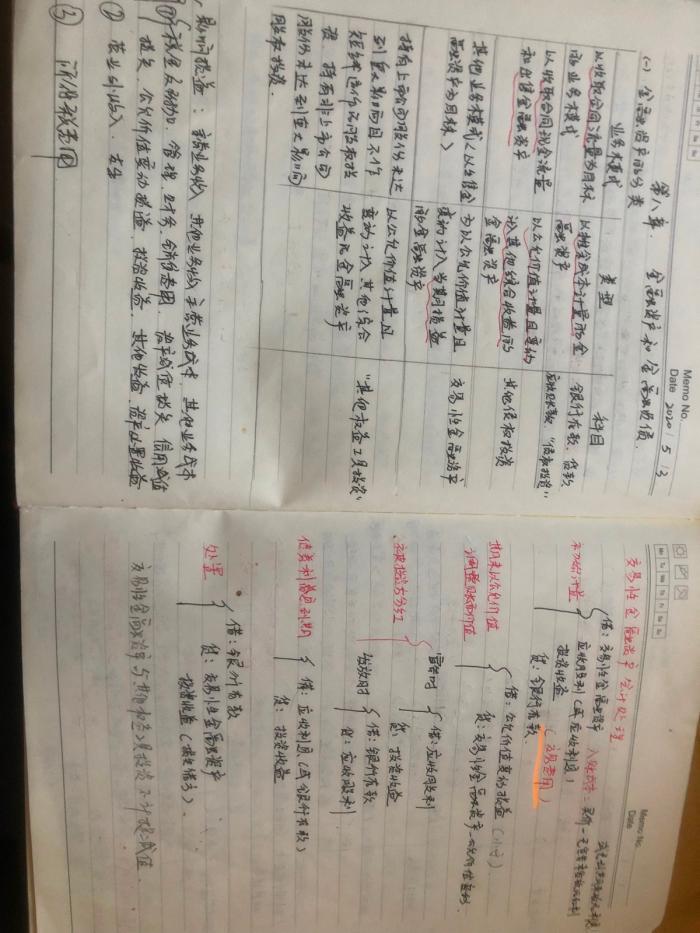 Memo No.
Date 2020 / 5 / 3
第八章 金融资产和金融负债
(一) 金融资产的分类
业务模式 类型 科目
以收取合同流量为目标的业务模式
以摊余成本计量的金融资产
银行存款、贷款
应收账款、"债权投资"
以收取合同现金流量和出售金融资产
以公允价值计量且变动计入其他综合收益的金融资产
其他债权投资
其他业务模式(以出售金融资产为目标)
为以公允价值计量且变动计入当期损益的金融资产
交易性金融资产
持有上市公司股份未达到重大影响而且不作短期运作的股权投资 持有非上市公司股份未达到重大影响的股权投资
以公允价值计量且变动计入其他综合收益的金融资产
"其他权益工具投资"
期间损益:主营业务收入 其他业务收入 主营业务成本 其他业务成本
① 税金及附加、管理、财务、销售费用、资产减值损失 信用减值
损失、公允价值变动损益、投资收益、其他收益、资产处置收益
② 营业外收入、支出
③ 所得税费用
Memo No.
Date
交易性金融资产会计处理
初始计量
借:交易性金融资产 入账成本=买价-
应收股利(或应收利息)
投资收益 (交易费用)
贷:银行存款
期末以公允价值调整账面价值
借:公允价值变动损益
贷:交易性金融资产-公允价值变动
被投资方分红
宣告时
借:应收股利
贷:投资收益
发放时
借:银行存款
贷:应收股利
债券利息到期
借:应收利息(或银行存款)
贷:投资收益
处置
借:银行存款
贷:交易性金融资产
投资收益(或借方)
交易性金融资产与其他权益工具投资不计提减值